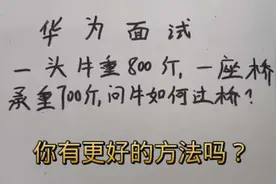 华为面试
一头牛重800斤,一座桥
承重700斤,问牛如何过桥?
你有更好的方法吗？